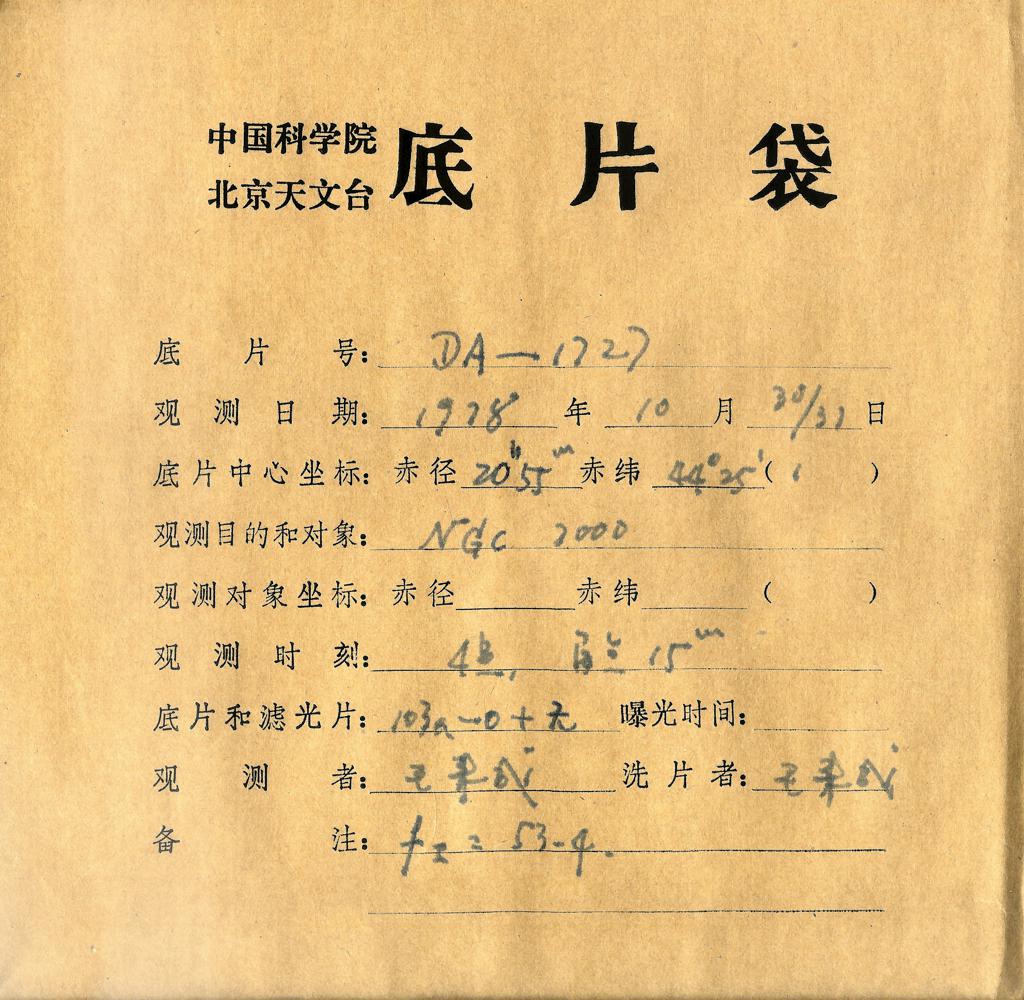 中国科学院
北京天文台
底片袋
底片号: DA—1727
观测日期: 1978年10月30/31日
底片中心坐标: 赤径 20h55m 赤纬 44°25′( )
观测目的和对象: NGC 7000
观测对象坐标: 赤径 赤纬 ( )
观测时刻: 4点, 每点 15m
底片和滤光片: 103a-O+无 曝光时间:
观测者: 王 洗片者: 王
备注: f = 53.4.